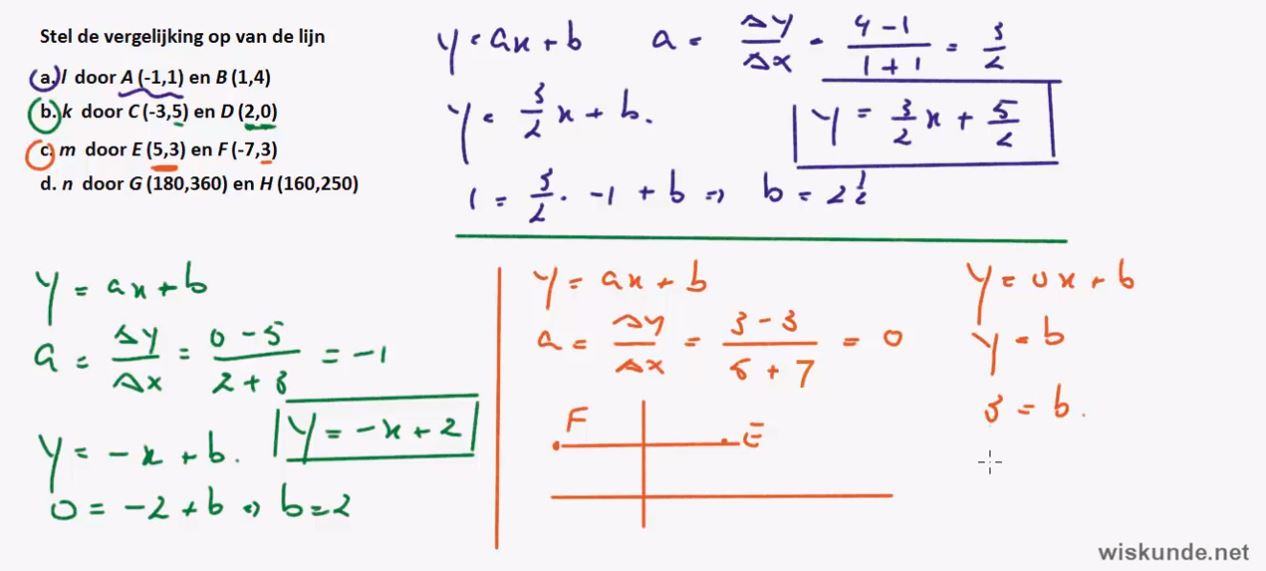 Stel de vergelijking op van de lijn
a. l door A (-1,1) en B (1,4)
b. k door C (-3,5) en D (2,0)
c. m door E (5,3) en F (-7,3)
d. n door G (180,360) en H (160,250)
y = ax + b   a = Δy/Δx = (4 - 1)/(1 + 1) = 3/2
y = 3/2 x + b.   y = 3/2 x + 5/2
1 = 3/2 · -1 + b => b = 2 1/2
y = ax + b
a = Δy/Δx = (0 - 5)/(2 + 3) = -1
y = -x + b.   y = -x + 2
0 = -2 + b => b = 2
y = ax + b
a = Δy/Δx = (3 - 3)/(5 + 7) = 0
F
E
y = 0x + b
y = b
3 = b.
wiskunde.net